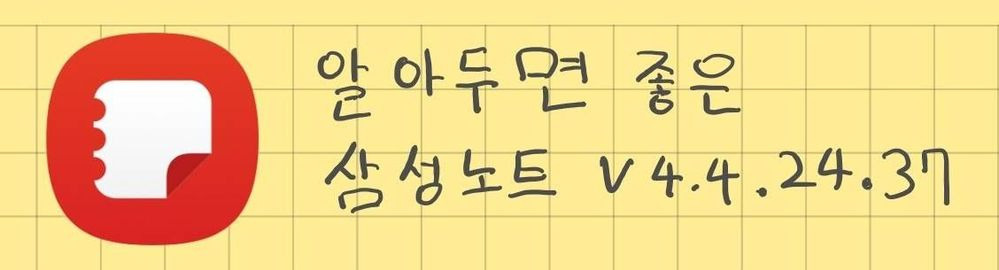 알아두면 좋은
삼성노트 V4.4.24.37